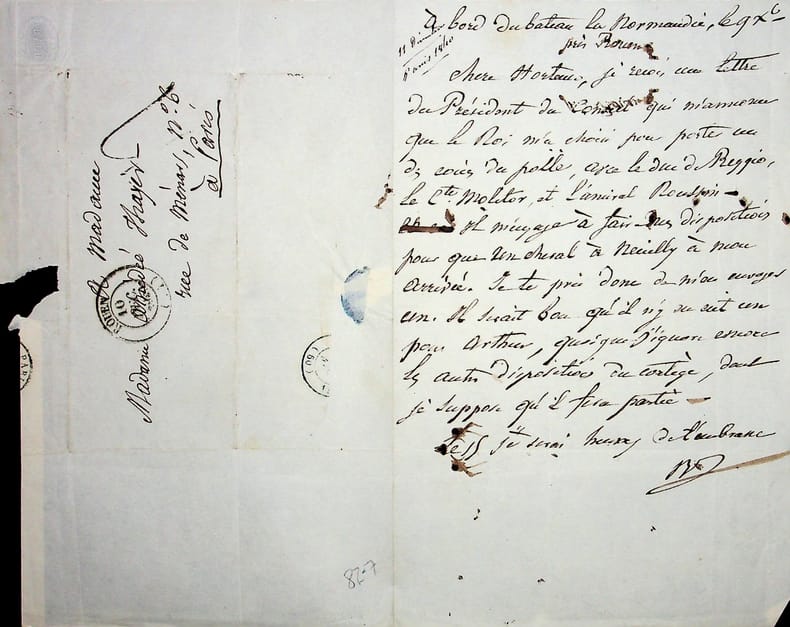 à bord du bateau la Normandie, le 9 Xbre
près Rouen
11 Décembre
Paris 1840
chère Hortense, je reçois une lettre
du Président du Conseil qui m'annonce
que le Roi m'a choisi pour porter un
des coins du poële, avec le duc de Reggio,
le Cte Molitor, et l'amiral Roussin
Il m'engage à faire mes dispositions
pour que un cheval à Neuilly à mon
arrivée. Je te prie donc de m'en envoyer
un. Il serait bon qu'il n'y en eut un
pour Arthur, quoique j'ignore encore
les autres dispositions du cortège, dont
je suppose qu'il fera partie
Le 15 je serai heureux de t'embrasser
Madame
Madame Amédée Thayer
rue de Ménars, n° 6
à Paris
ROUEN
10
(60)
82-7